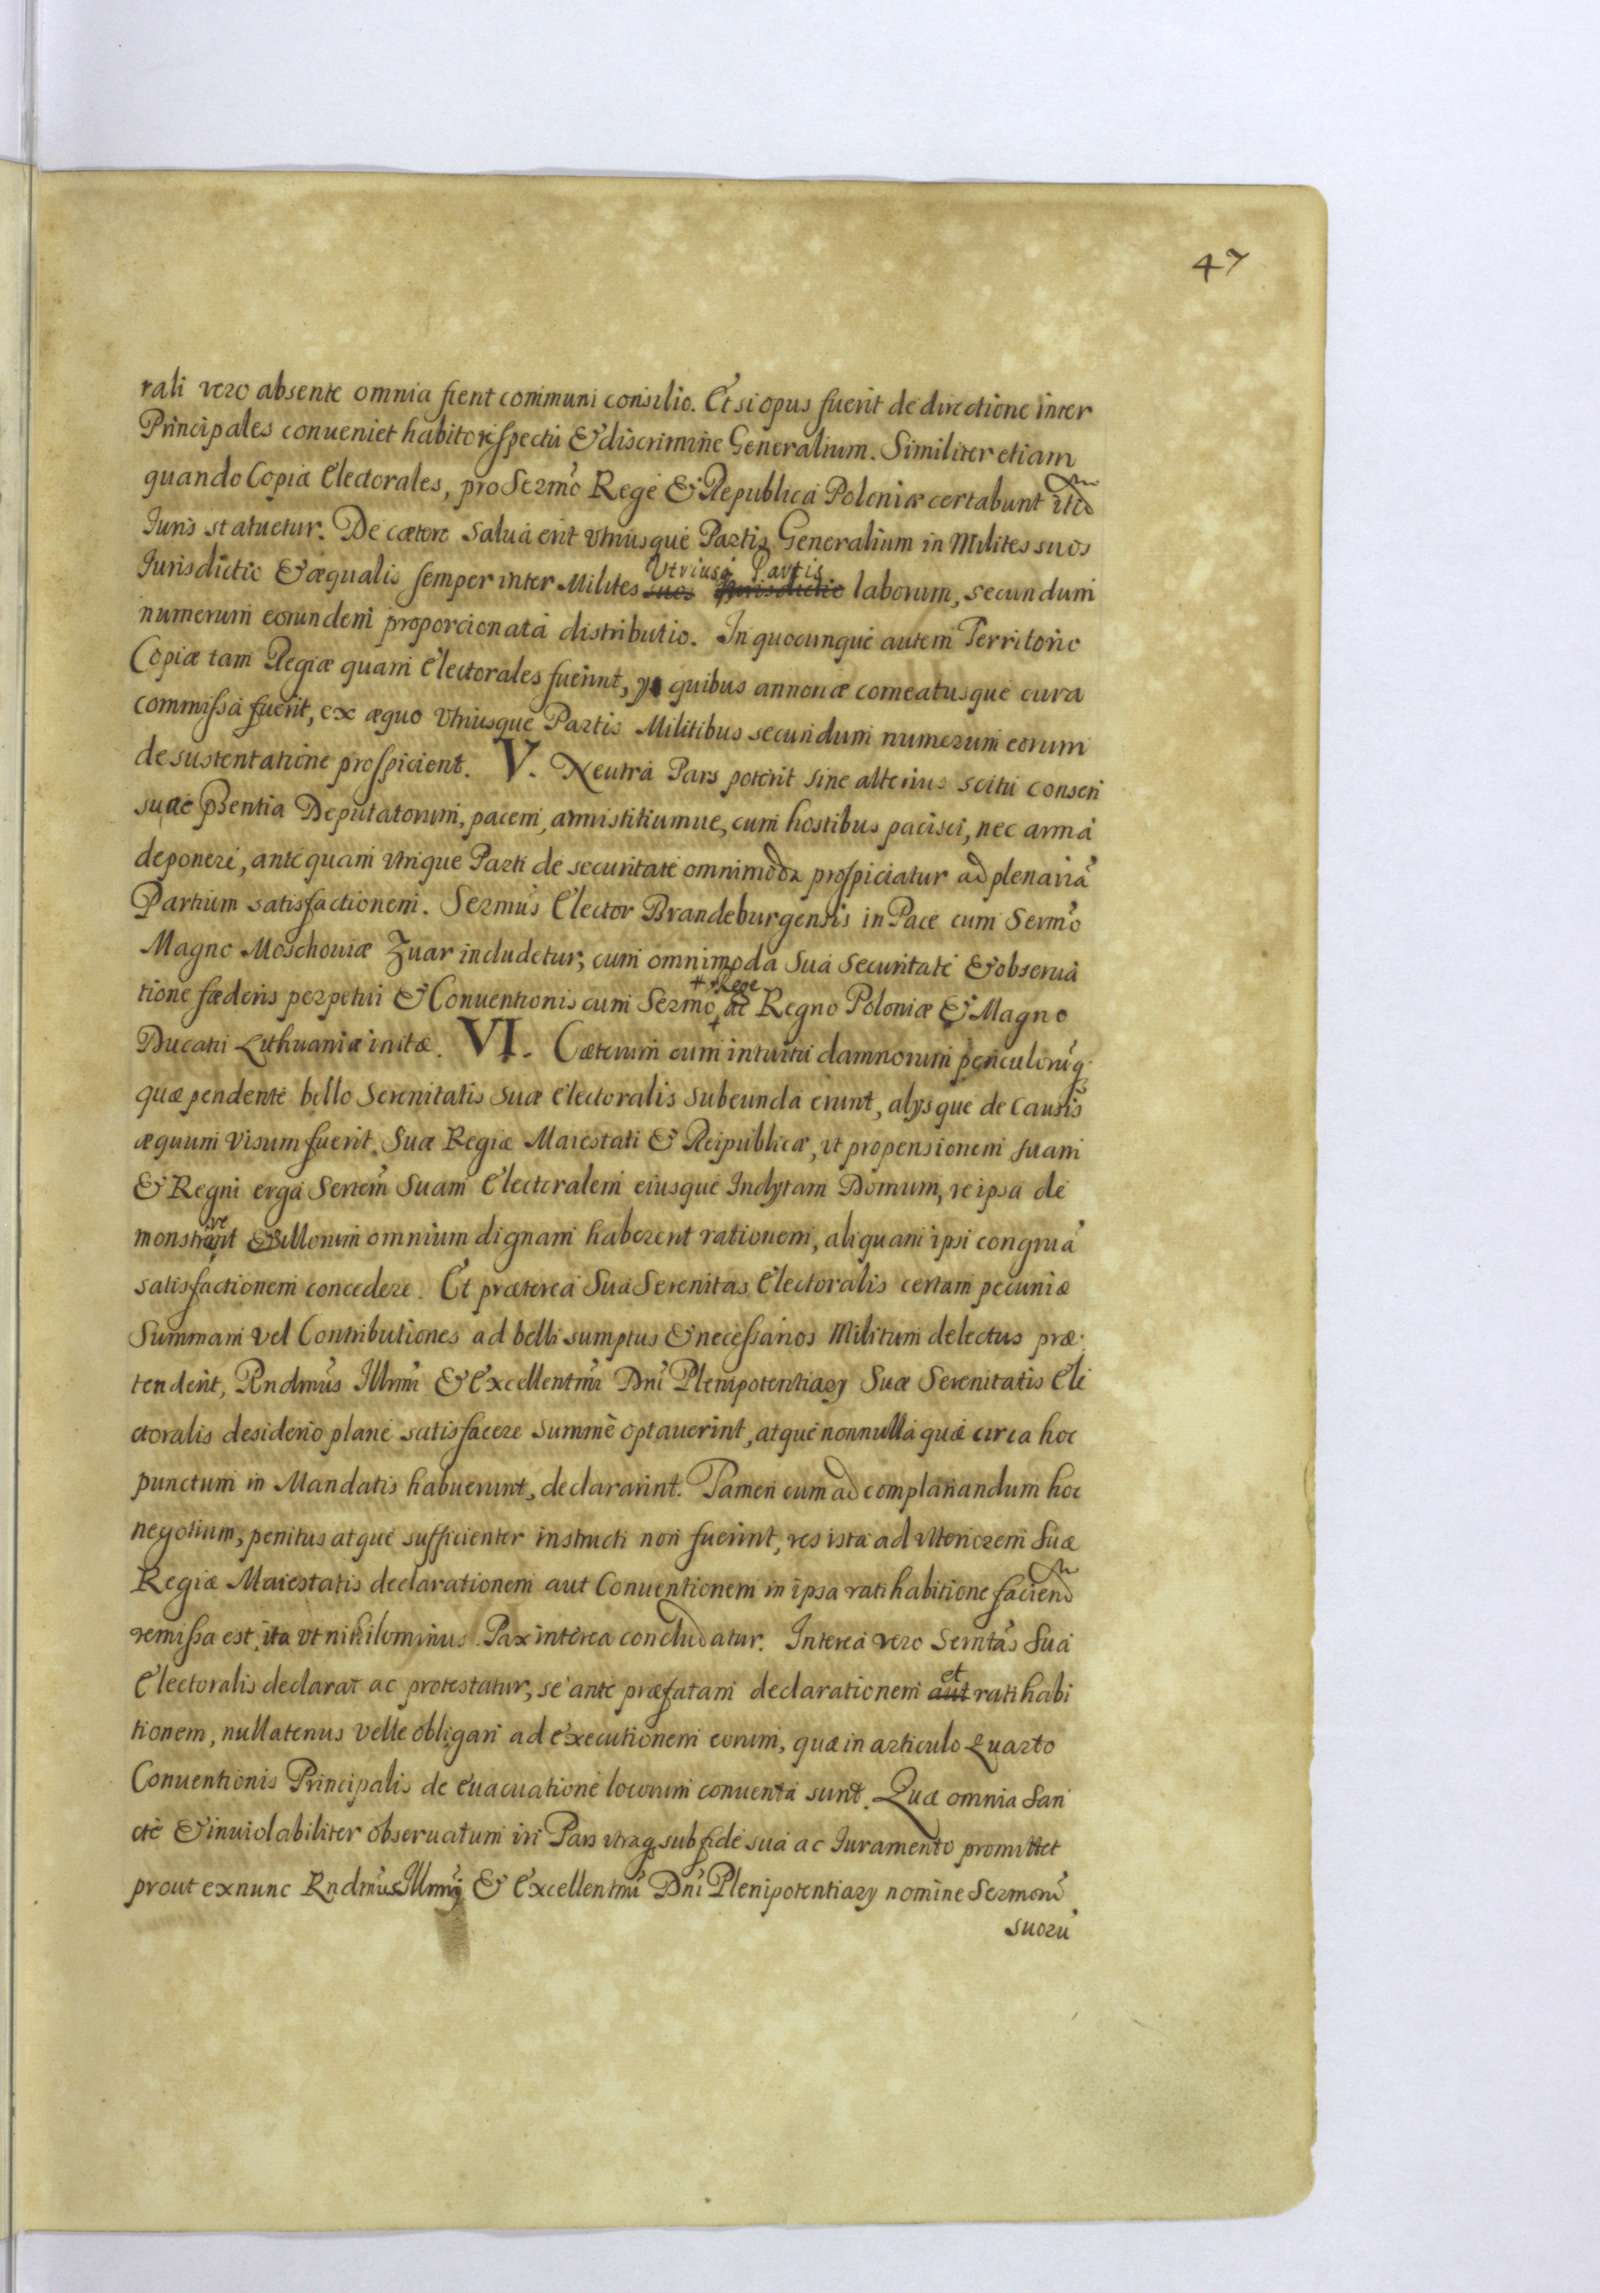 47
rali vero absente omnia fient communi consilio. Et si opus fuerit de directione inter
Principales conueniet habito respectu & discrimine Generalium. Similiter etiam
quando Copiæ Electorales, pro Sermo Rege & Republica Poloniæ certabunt itid
Iuris statuetur. De cætero salua erit vtriusque Partis Generalium in Milites suos
Iurisdictio & æqualis semper inter Milites suos Iurisdictio Vtriusq Partis laborum, secundum
numerum eorundem proporcionata distributio. In quocunque autem Territorio
Copiæ tam Regiæ quam Electorales fuerint, quibus annonæ comeatusque cura
commissa fuerit, ex æquo vtriusque Partis Militibus secundum numerum eorum
de sustentatione prospicient. V. Neutra Pars poterit sine alterius scitu consen
su ac psentia Deputatorum, pacem, armistitiumue, cum hostibus pacisci, nec arma
deponere, ante quam vtrique Parti de securitate omnimoda prospiciatur ad plenariã
Partium satisfactionem. Sermus Elector Brandeburgensis in Pace cum Sermo
Magno Moschouiæ Zuar includetur, cum omnimoda sua securitate & obserua
tione fæderis perpetui & Conuentionis cum Sermo Rege ac Regno Poloniæ & Magno
Ducatu Lithuaniæ initæ. VI. Cæterum cum intuitu damnorum periculorũq
quæ pendente bello Serenitatis Suæ Electoralis subeunda erunt, alysque de causis
æquum visum fuerit Suæ Regiæ Maiestati & Reipublicæ, vt propensionem suam
& Regni erga Sertem Suam Electoralem eiusque Inclytam Domum, re ipsa de
monstrarent & illorum omnium dignam haberent rationem, aliquam ipsi congruã
satisfactionem concedere. Et præterea Sua Serenitas Electoralis certam pecuniæ
Summam vel Contributiones ad belli sumptus & necessarios Militum delectus præ
tenderit, Rndmus Illmi & Excellentmi Dni Plenipotentiary Suæ Serenitatis Ele
ctoralis desiderio plane satisfacere summè optauerint, atque nonnulla quæ circa hoc
punctum in Mandatis habuerunt, declararint. Tamen cum ad complanandum hoc
negotium, penitus atque sufficienter instructi non fuerint, res ista ad vlteriorem Suæ
Regiæ Maiestatis declarationem aut Conuentionem in ipsa ratihabitione faciend
remissa est, ita vt nihilominus Pax interea concludatur. Interea vero Serntas Sua
Electoralis declarat ac protestatur, se ante præfatam declarationem aut et ratihabi
tionem, nullatenus velle obligari ad executionem eorum, quæ in articulo Quarto
Conuentionis Principalis de euacuatione locorum conuenta sunt. Quæ omnia San
cte & inuiolabiliter obseruatum iri Pars vtraq sub fide sua ac Iuramento promittet
prout exnunc Rndmus Illmi & Excellentmi Dni Plenipotentiary nomine Sermorũ
suorũ